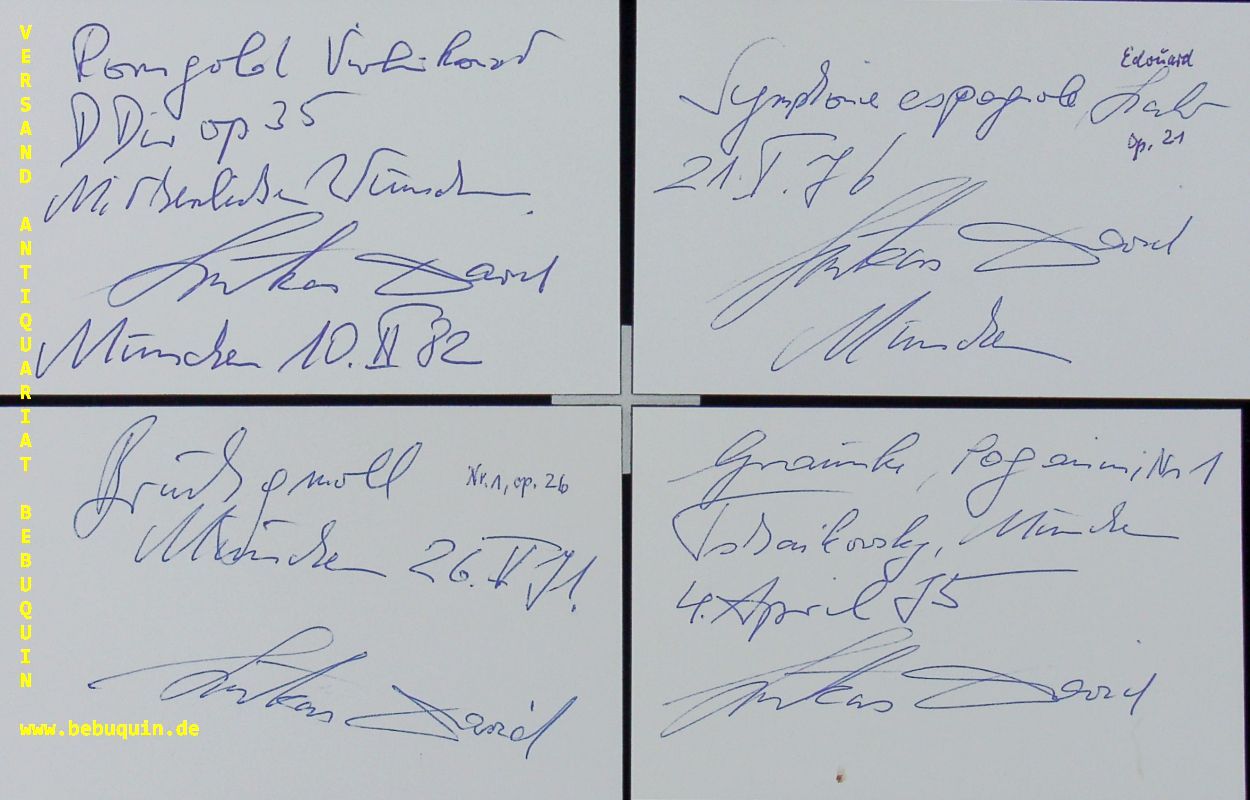 Korngold Violinkonzert
D Dur op 35
Mit herzlichen Wünschen
Lukas David
München 10. II 82
Edouard
Symphonie espagnole Lalo
Op. 21
21. V. 76
Lukas David
München
Bruch g moll Nr. 1, op. 26
München 26. V 71.
Lukas David
Paganini, Nr 1
Tschaikovsky, München
4. April 75
Lukas David
VERSAND ANTIQUARIAT BEBUQUIN
www.bebuquin.de